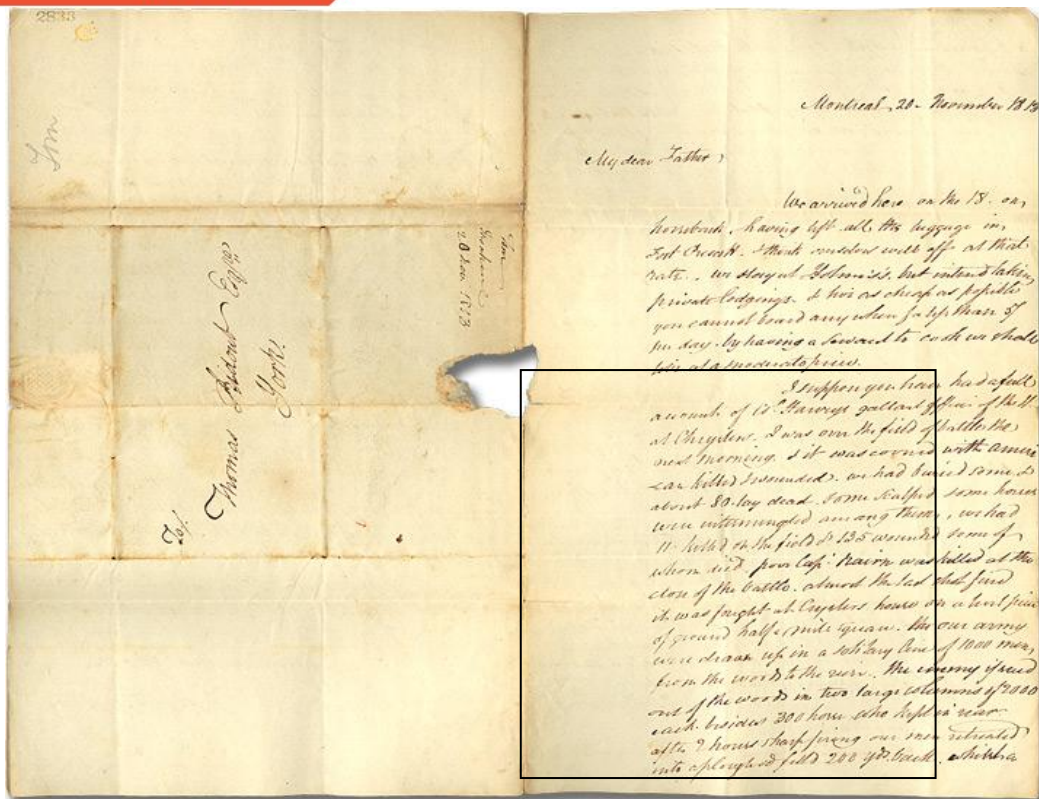 2833
Tom
To/.
Thomas Ridout Esqre
York.
Tom
20 Nov. 1813
Montreal, 20 - November 1813
My dear Father,
We arrived here on the 18. on
horseback, having left all the luggage in
Fort Prescott. I think ourselves well off at that
rate. we stay at Holmes's. but intend taking
private lodgings. & live as cheap as possible
you cannot board any where for less than 5/
per day. by having a servant to cook we shall
live at a moderate price.
I suppose you have had a full
account of Col. Harveys gallant affair of the 11.
at Chryslers. I was over the field of battle the
next morning. & it was covered with Ameri
can killed & wounded. we had buried some &
about 80 lay dead. some scalped some horses
were intermingled among them, we had
11. killed on the field & 135 wounded some of
whom died. poor Cap. Nairn was killed at the
close of the battle. almost the last shot fired
it was fought at Cryslers house on a level piece
of ground half a mile square. our army
were drawn up in a solitary line of 1000 men,
from the woods to the river. the enemy issued
out of the woods in two large columns of 2000
each. besides 300 horse who kept in rear
after 2 hours sharp firing our men retreated
into a ploughed field 200 yds. back. which a